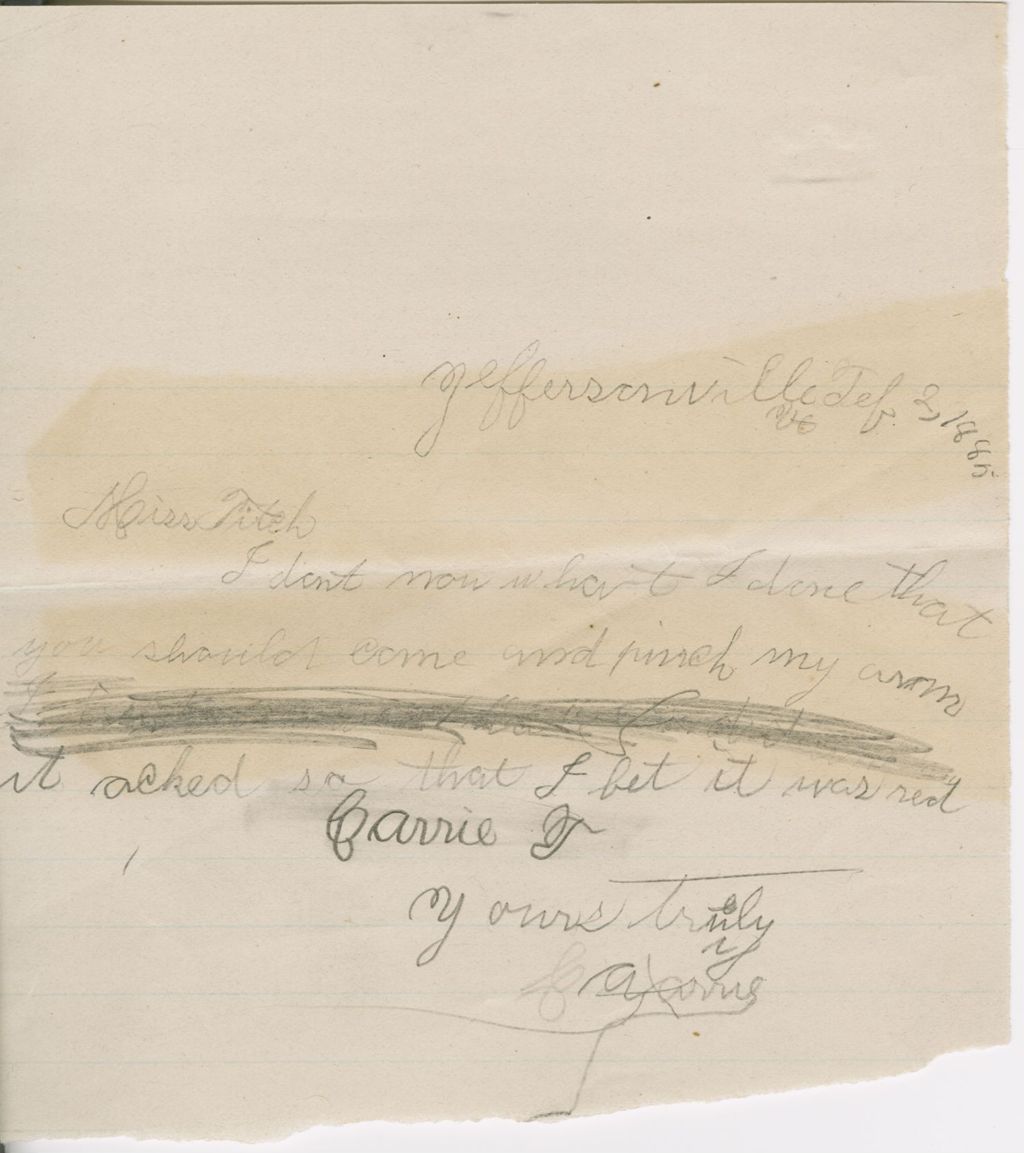 Jeffersonville Feb. 3, 1885
Vt
Miss Fitch
I dont now what I done that
you should come and pinch my arom
it acked so that I bet it was red
Carrie T
Yours truly
Carrie